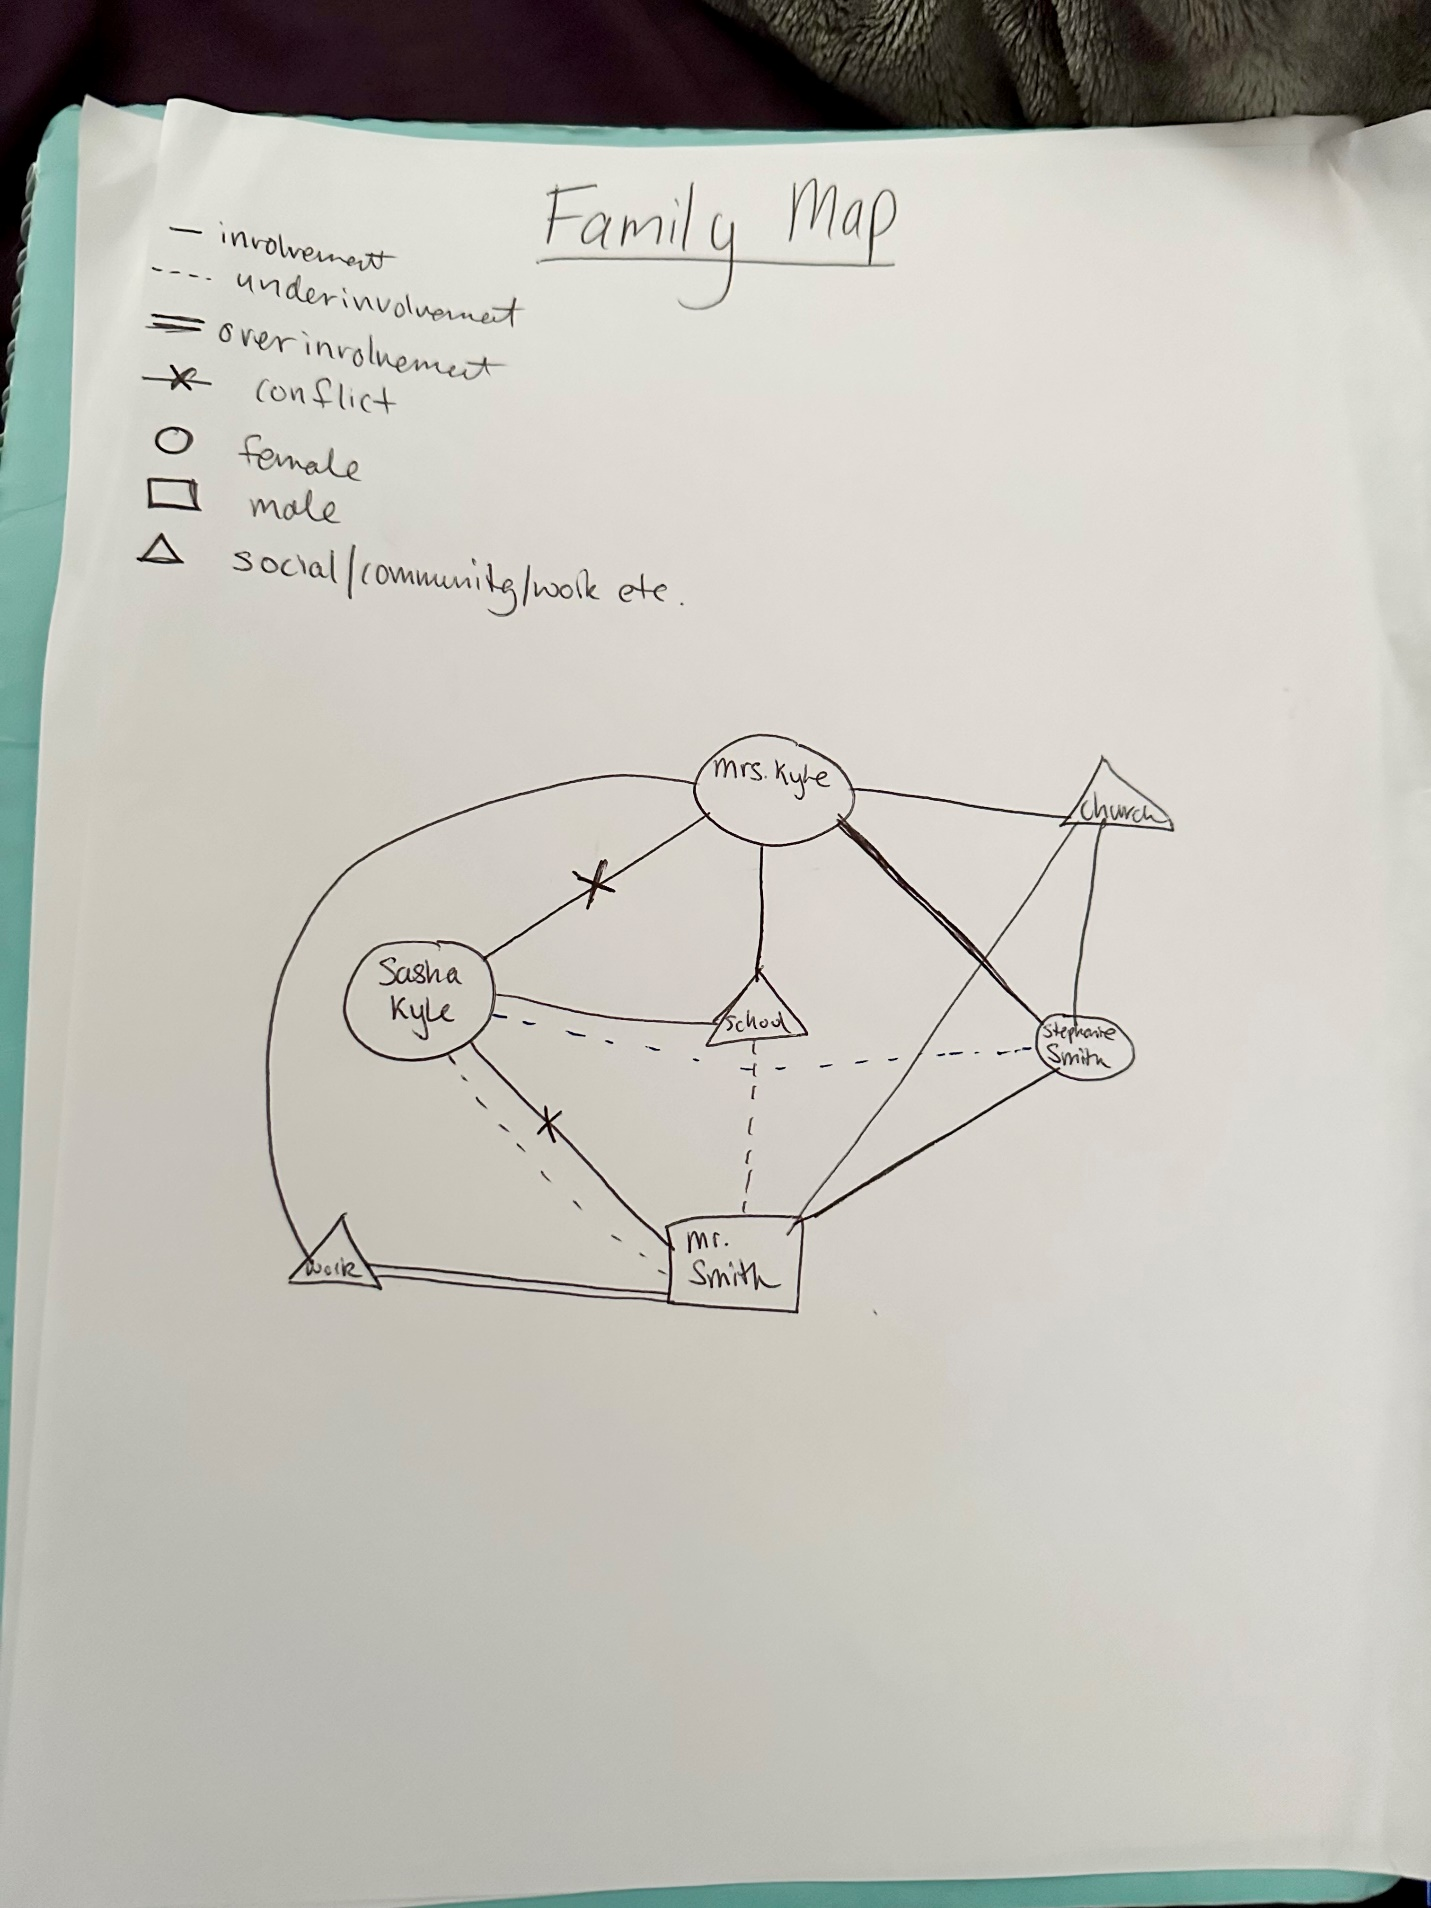 Family Map
involvement
underinvolvement
overinvolvement
conflict
female
male
social/community/work etc.
Mrs. Kyle
Church
Sasha
Kyle
School
Stephanie
Smith
Mr.
Smith
work